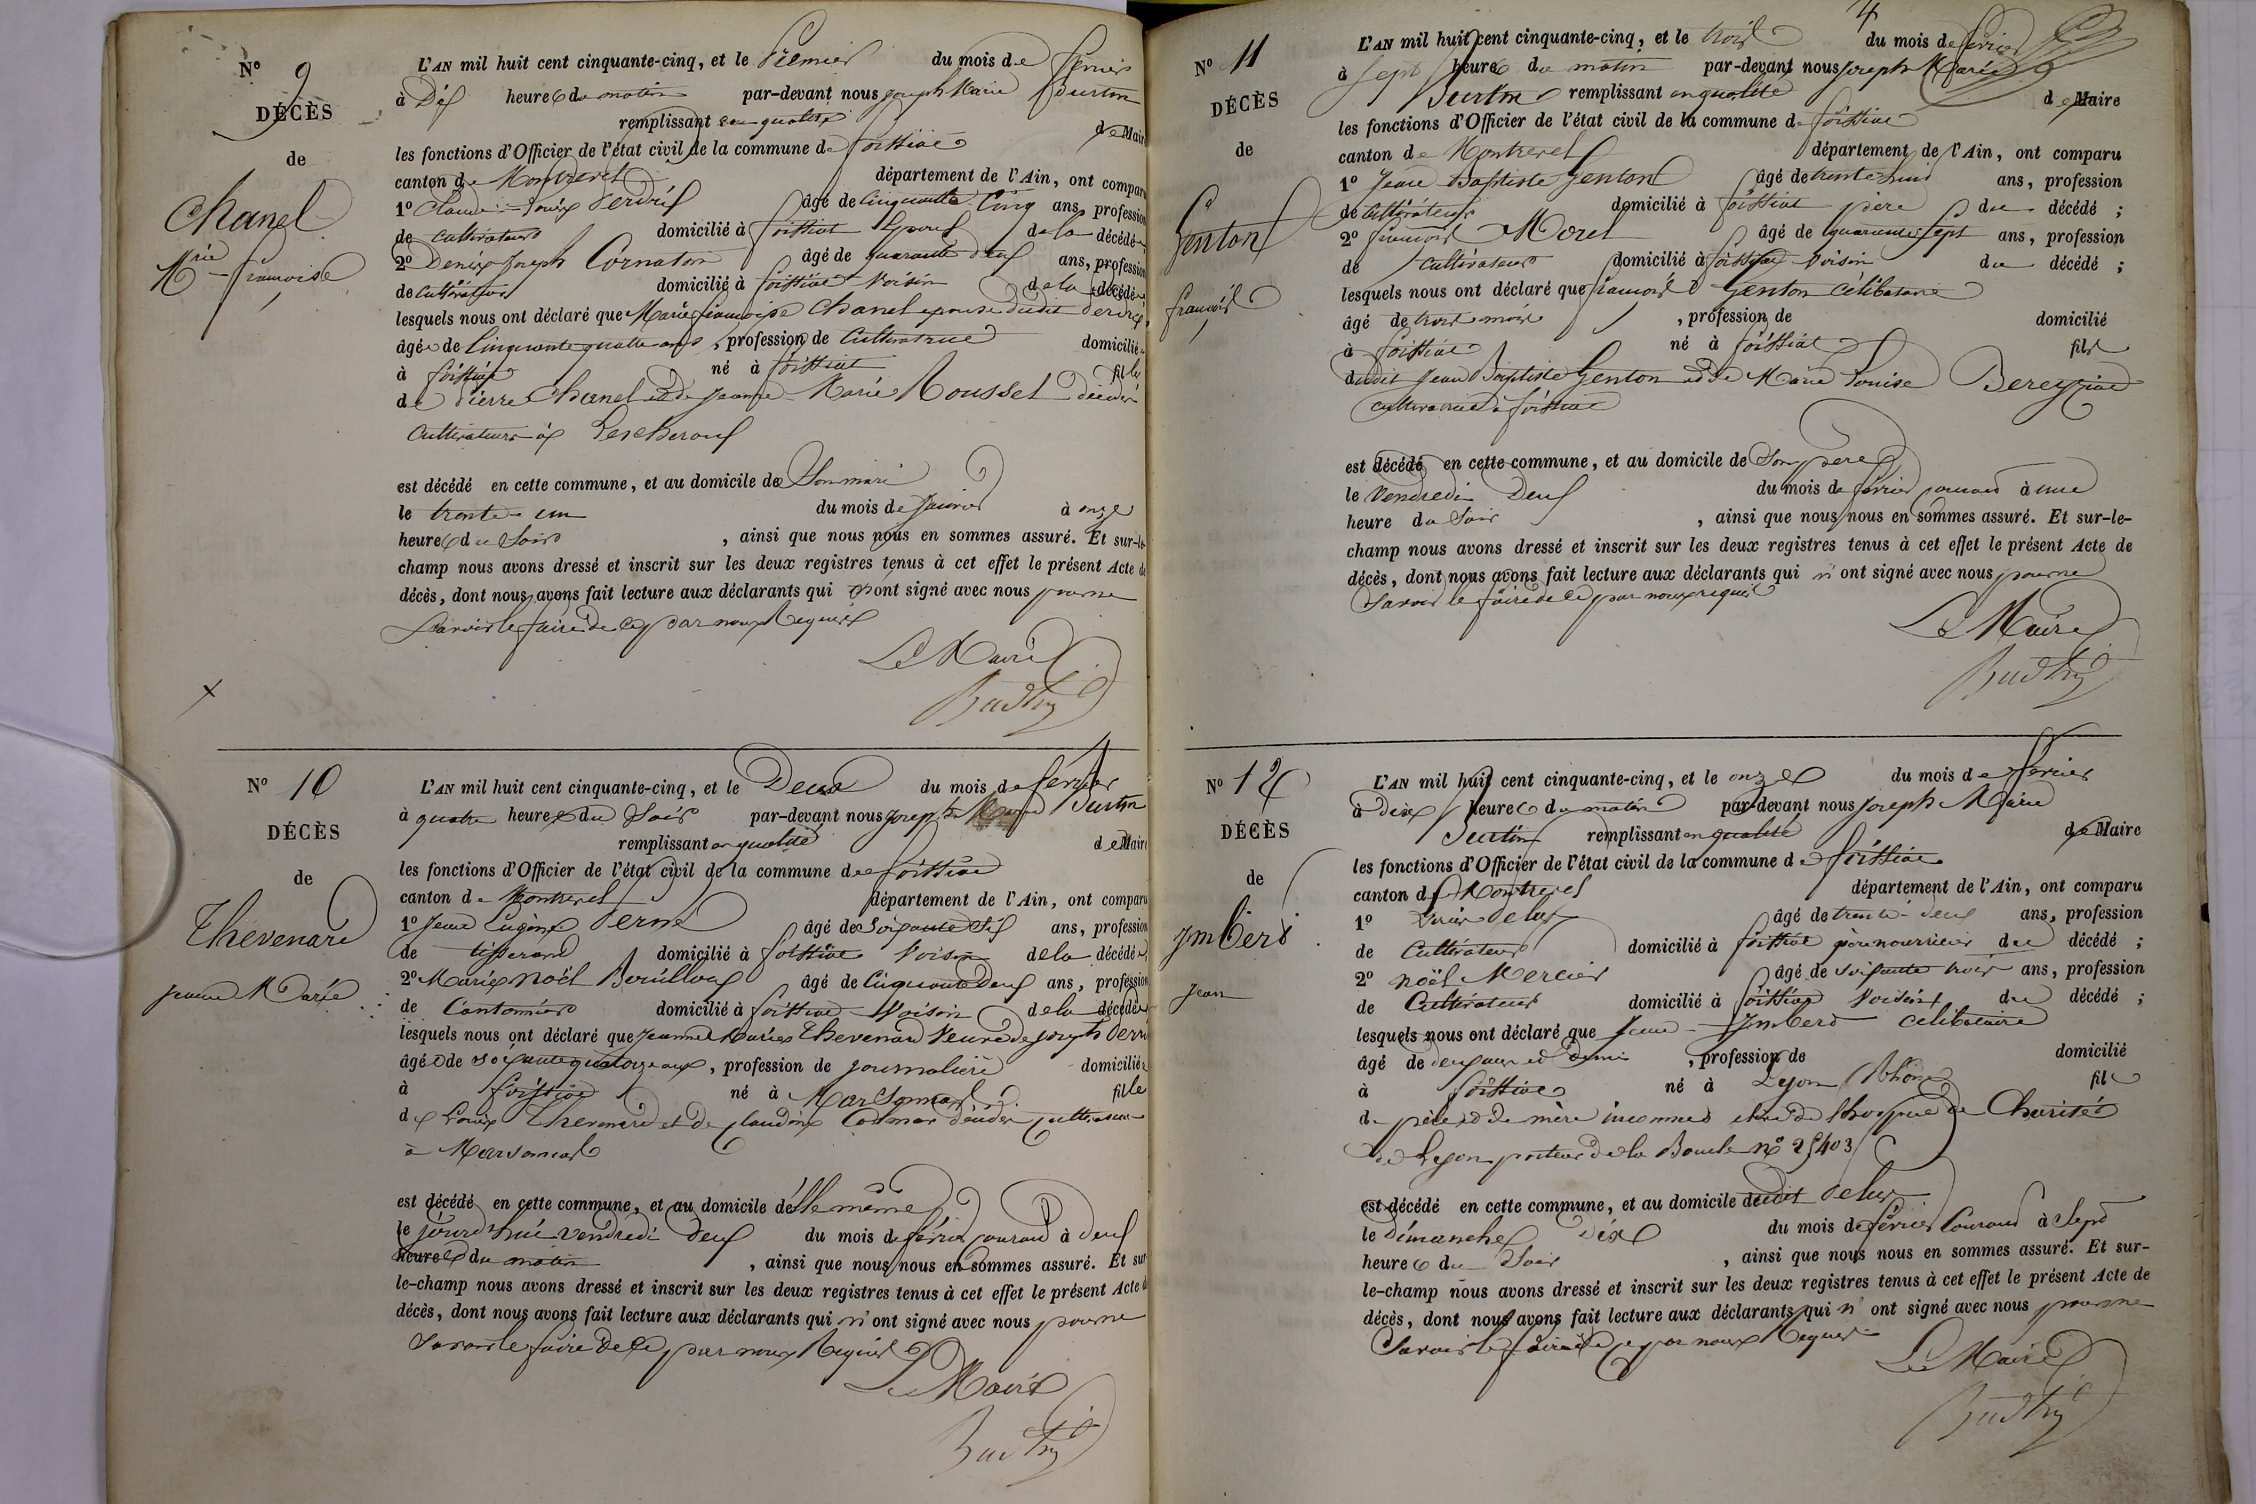 N° 9
DÉCÈS
de
Chanel
Mrie françoise
L'AN mil huit cent cinquante-cinq, et le Premier du mois de fevrier
à Dix heures du matin par-devant nous joseph Marie Burtin
remplissant en qualité de Maire
les fonctions d'Officier de l'état civil de la commune de foissiat
canton de Montrevel département de l'Ain, ont comparu
1° Claude Louis âgé de Cinquante Cinq ans, profession
de cultivateur domicilié à foissiat Epoux de la décédée
2° Denis joseph Cornaton âgé de quarante deux ans, profession
de cultivateur domicilié à foissiat Voisin de la décédée
lesquels nous ont déclaré que Marie françoise Chanel epouse dudit
âgée de Cinquante quatre ans, profession de Cultivatrice domiciliée
à foissiat né à foissiat fille
de Pierre Chanel et de jeanne Marie Rousset décédés
Cultivateurs à Lescheroux
est décédé en cette commune, et au domicile de Son mari
le trente un du mois de Janvier à onze
heures du Soir, ainsi que nous nous en sommes assuré. Et sur-le-
champ nous avons dressé et inscrit sur les deux registres tenus à cet effet le présent Acte de
décès, dont nous avons fait lecture aux déclarants qui n'ont signé avec nous pour ne
Savoir le faire de ce par nous Requis
Le Maire
Burtin
N° 10
DÉCÈS
de
Thevenard
jeanne Marie
L'AN mil huit cent cinquante-cinq, et le Deux du mois de février
à quatre heures du Soir par-devant nous joseph Marie Burtin
remplissant en qualité de Maire
les fonctions d'Officier de l'état civil de la commune de foissiat
canton de Montrevel département de l'Ain, ont comparu
1° Jean Eugène âgé de Soixante Six ans, profession
de tisserand domicilié à foissiat Voisin de la décédée
2° Marie Noël âgé de Cinquante Deux ans, profession
de Cantonnier domicilié à foissiat Voisin de la décédée
lesquels nous ont déclaré que jeanne Marie Thevenard Veuve de joseph
âgée de soixante quatorze ans, profession de journalière domiciliée
à foissiat né à Marsonnas fille
de Louis Thevenard et de Claudine décédés cultivateurs
à Marsonnas
est décédé en cette commune, et au domicile d'elle même
le jourd'hui vendredi deux du mois de février courant à deux
heures du matin, ainsi que nous nous en sommes assuré. Et sur
le-champ nous avons dressé et inscrit sur les deux registres tenus à cet effet le présent Acte de
décès, dont nous avons fait lecture aux déclarants qui n'ont signé avec nous pour ne
Savoir le faire de ce par nous Requis
Le Maire
Burtin
4
N° 11
DÉCÈS
de
Genton
françois
L'AN mil huit cent cinquante-cinq, et le trois du mois de février
à Sept heures du matin par-devant nous joseph Marie
Burtin remplissant en qualité de Maire
les fonctions d'Officier de l'état civil de la commune de foissiat
canton de Montrevel département de l'Ain, ont comparu
1° Jean Baptiste Genton âgé de trente huit ans, profession
de cultivateur domicilié à foissiat père du décédé ;
2° françois Morel âgé de quarante Sept ans, profession
de cultivateur domicilié à foissiat Voisin du décédé ;
lesquels nous ont déclaré que françois Genton Célibataire
âgé de trois mois, profession de domicilié
à foissiat né à foissiat fils
dudit Jean Baptiste Genton et de Marie Louise Bereyziat
cultivatrice à foissiat
est décédé en cette commune, et au domicile de Son père
le Vendredi Deux du mois de février courant à une
heure du Soir, ainsi que nous nous en sommes assuré. Et sur-le-
champ nous avons dressé et inscrit sur les deux registres tenus à cet effet le présent Acte de
décès, dont nous avons fait lecture aux déclarants qui n'ont signé avec nous pour ne
Savoir le faire de ce par nous requis
Le Maire
Burtin
N° 12
DÉCÈS
de
jmberd
jean
L'AN mil huit cent cinquante-cinq, et le onze du mois de fevrier
à dix heures du matin par-devant nous joseph Marie
Burtin remplissant en qualité de Maire
les fonctions d'Officier de l'état civil de la commune de foissiat
canton de Montrevel département de l'Ain, ont comparu
1° âgé de trente deux ans, profession
de Cultivateur domicilié à foissiat père nourricier du décédé ;
2° Noël Mercier âgé de soixante trois ans, profession
de Cultivateur domicilié à foissiat Voisin du décédé ;
lesquels nous ont déclaré que Jean jmberd célibataire
âgé de deux ans et demi, profession de domicilié
à foissiat né à Lyon Rhône fils
de père et de mère inconnus élève de l'hospice de Charité
de Lyon porteur de la Boucle N° 25403
est décédé en cette commune, et au domicile dudit
le Dimanche Dix du mois de février Courant à Sept
heures du Soir, ainsi que nous nous en sommes assuré. Et sur-
le-champ nous avons dressé et inscrit sur les deux registres tenus à cet effet le présent Acte de
décès, dont nous avons fait lecture aux déclarants qui n'ont signé avec nous pour ne
Savoir le faire de ce par nous Requis
Le Maire
Burtin